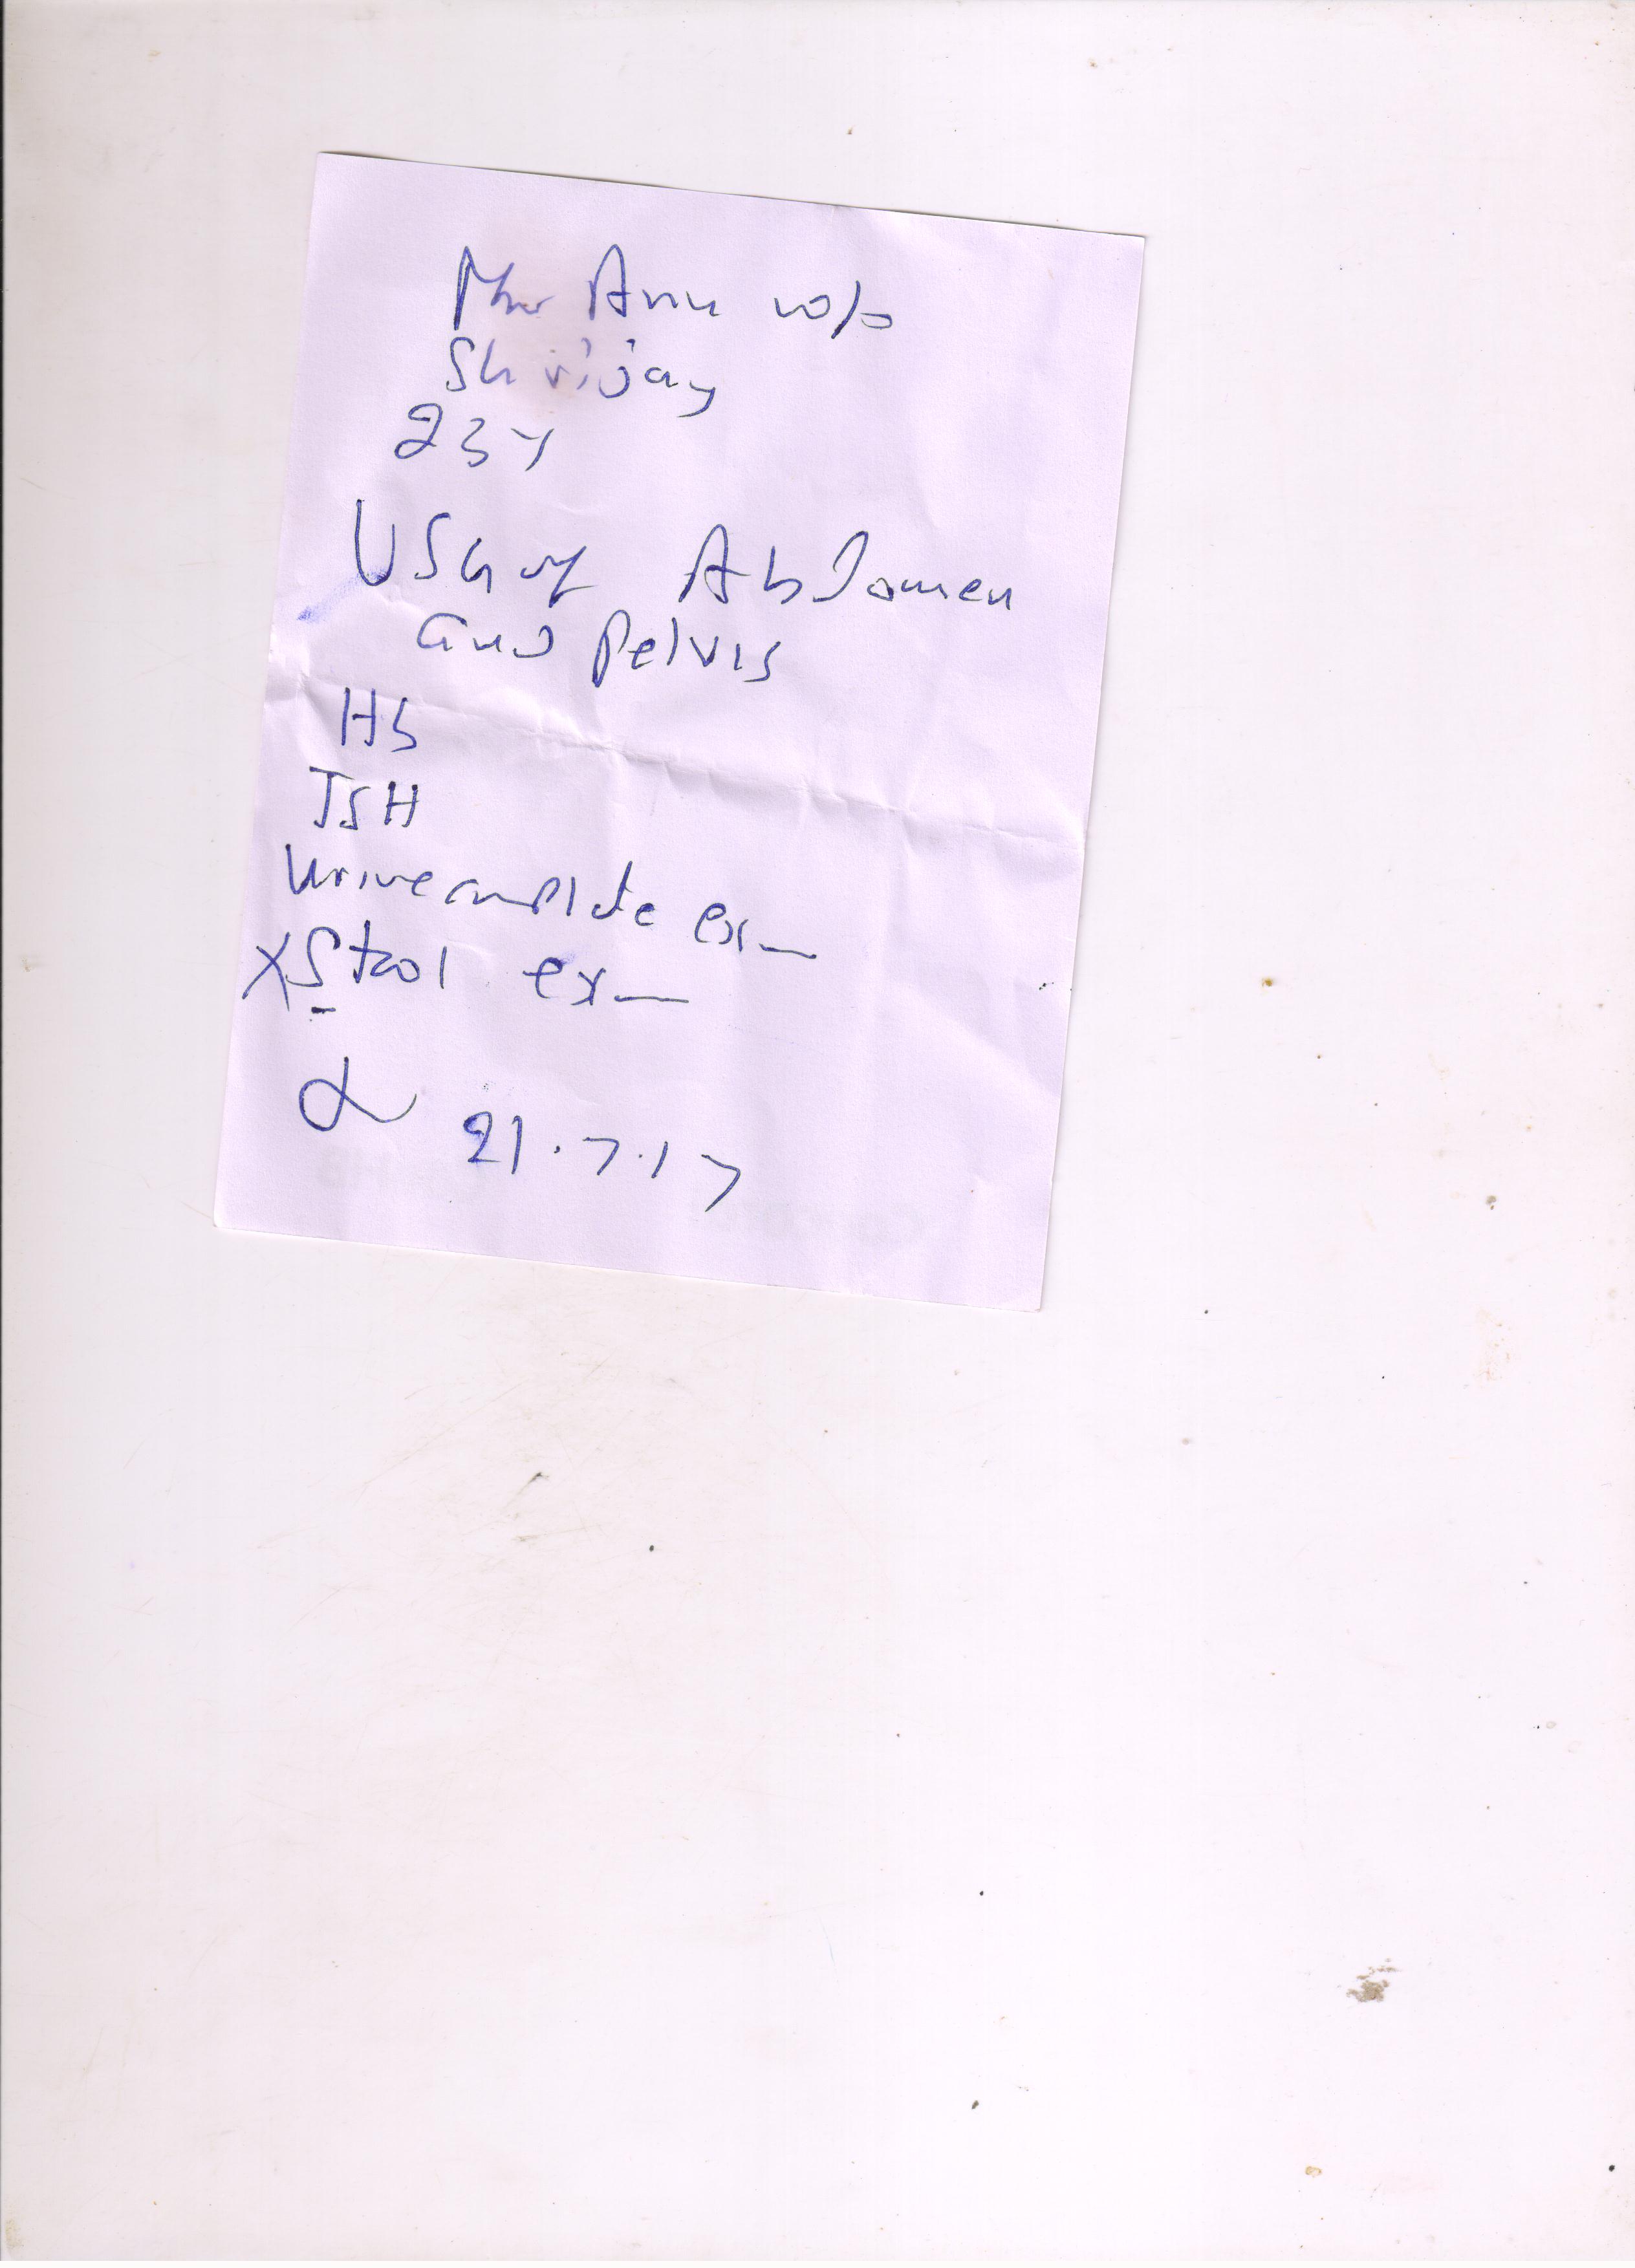 Mrs Annu w/o
Sh vijay
23 Y
USG of Abdomen
and Pelvis
Hb
TSH
Urine complete ex
X Stool ex
21.7.17